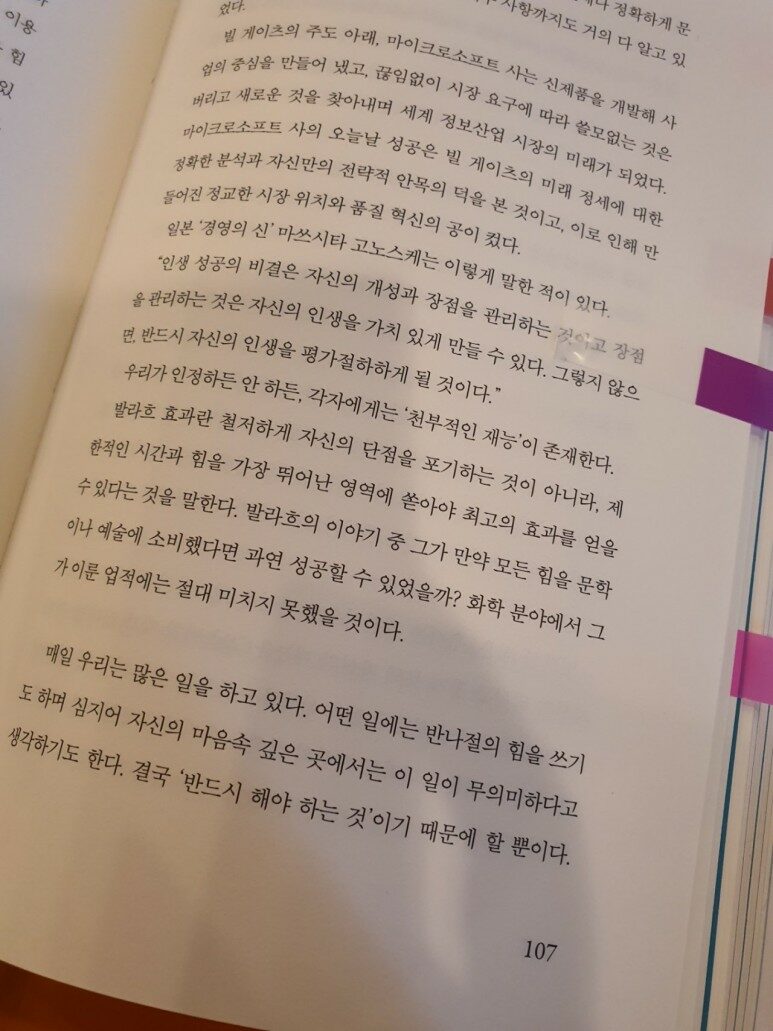 이용
힘
있
제나 정확하게 문
사항까지도 거의 다 알고 있
었다.
빌 게이츠의 주도 아래, 마이크로소프트 사는 신제품을 개발해 사
업의 중심을 만들어 냈고, 끊임없이 시장 요구에 따라 쓸모없는 것은
버리고 새로운 것을 찾아내며 세계 정보산업 시장의 미래가 되었다.
마이크로소프트 사의 오늘날 성공은 빌 게이츠의 미래 정세에 대한
정확한 분석과 자신만의 전략적 안목의 덕을 본 것이고, 이로 인해 만
들어진 정교한 시장 위치와 품질 혁신의 공이 컸다.
일본 ‘경영의 신’ 마쓰시타 고노스케는 이렇게 말한 적이 있다.
“인생 성공의 비결은 자신의 개성과 장점을 관리하는 것이고 장점
을 관리하는 것은 자신의 인생을 가치 있게 만들 수 있다. 그렇지 않으
면, 반드시 자신의 인생을 평가절하하게 될 것이다.”
우리가 인정하든 안 하든, 각자에게는 ‘천부적인 재능’이 존재한다.
발라흐 효과란 철저하게 자신의 단점을 포기하는 것이 아니라, 제
한적인 시간과 힘을 가장 뛰어난 영역에 쏟아야 최고의 효과를 얻을
수 있다는 것을 말한다. 발라흐의 이야기 중 그가 만약 모든 힘을 문학
이나 예술에 소비했다면 과연 성공할 수 있었을까? 화학 분야에서 그
가 이룬 업적에는 절대 미치지 못했을 것이다.
매일 우리는 많은 일을 하고 있다. 어떤 일에는 반나절의 힘을 쓰기
도 하며 심지어 자신의 마음속 깊은 곳에서는 이 일이 무의미하다고
생각하기도 한다. 결국 ‘반드시 해야 하는 것’이기 때문에 할 뿐이다.
107